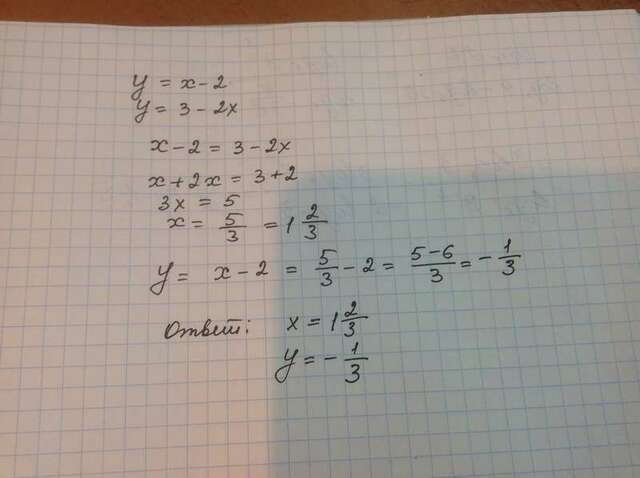 y = x - 2
y = 3 - 2x
x - 2 = 3 - 2x
x + 2x = 3 + 2
3x = 5
x = 5/3 = 1 2/3
y = x - 2 = 5/3 - 2 = (5-6)/3 = - 1/3
Ответ: x = 1 2/3
y = - 1/3